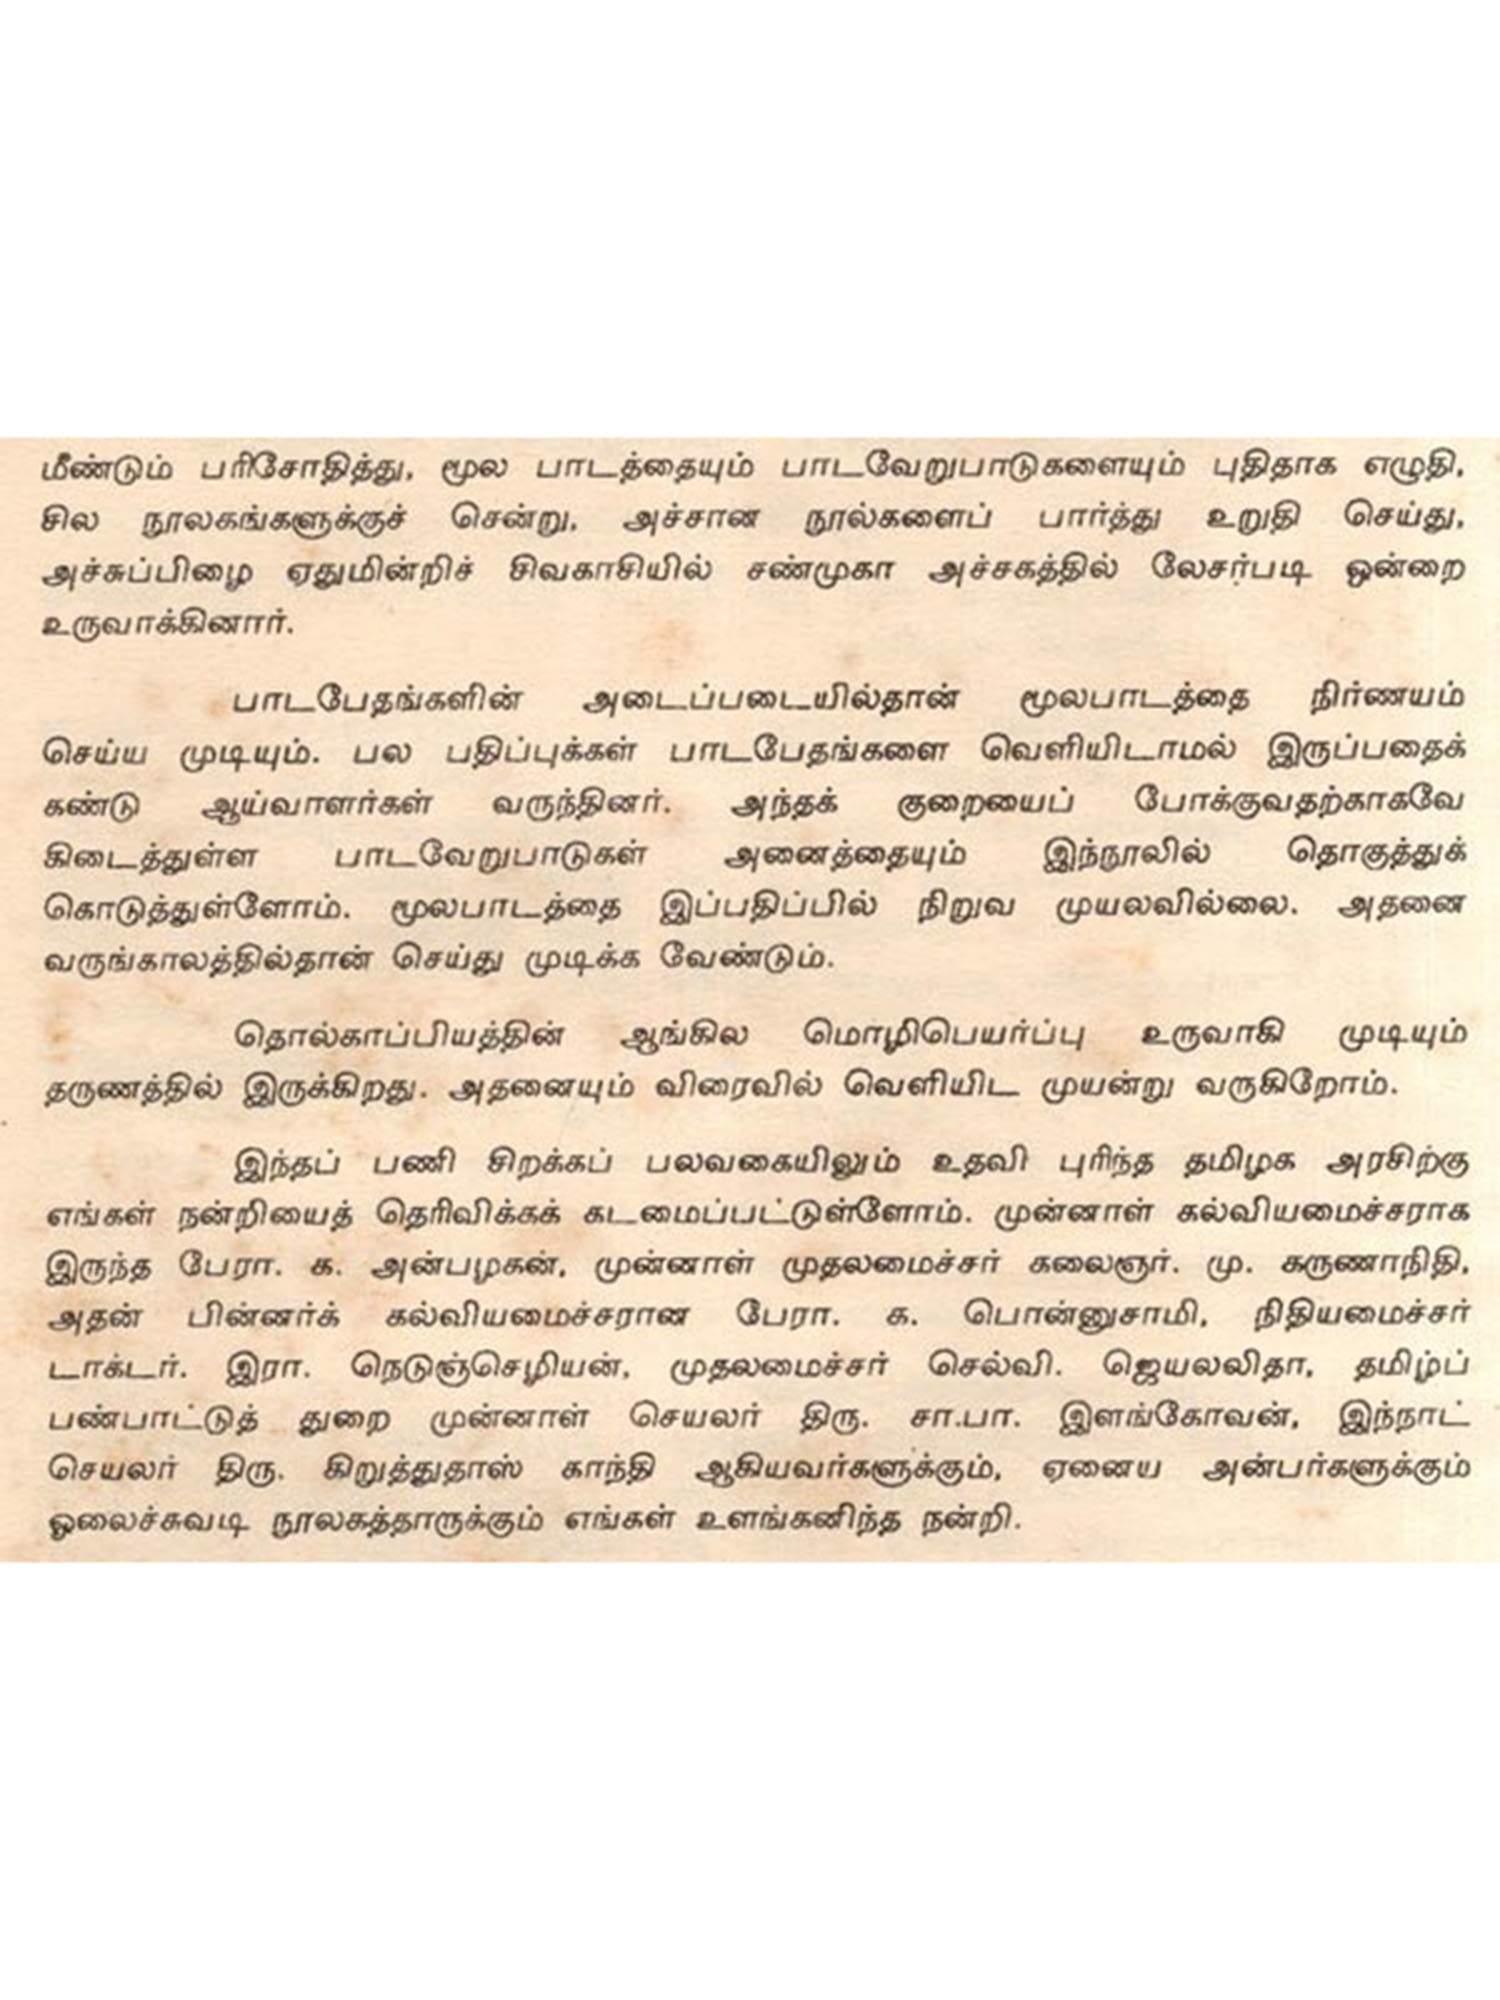 மீண்டும் பரிசோதித்து, மூல பாடத்தையும் பாடவேறுபாடுகளையும் புதிதாக எழுதி,
சில நூலகங்களுக்குச் சென்று, அச்சான நூல்களைப் பார்த்து உறுதி செய்து,
அச்சுப்பிழை ஏதுமின்றிச் சிவகாசியில் சண்முகா அச்சகத்தில் லேசர்படி ஒன்றை
உருவாக்கினார்.
பாடபேதங்களின் அடைப்படையில்தான் மூலபாடத்தை நிர்ணயம்
செய்ய முடியும். பல பதிப்புக்கள் பாடபேதங்களை வெளியிடாமல் இருப்பதைக்
கண்டு ஆய்வாளர்கள் வருந்தினர். அந்தக் குறையைப் போக்குவதற்காகவே
கிடைத்துள்ள பாடவேறுபாடுகள் அனைத்தையும் இந்நூலில் தொகுத்துக்
கொடுத்துள்ளோம். மூலபாடத்தை இப்பதிப்பில் நிறுவ முயலவில்லை. அதனை
வருங்காலத்தில்தான் செய்து முடிக்க வேண்டும்.
தொல்காப்பியத்தின் ஆங்கில மொழிபெயர்ப்பு உருவாகி முடியும்
தருணத்தில் இருக்கிறது. அதனையும் விரைவில் வெளியிட முயன்று வருகிறோம்.
இந்தப் பணி சிறக்கப் பலவகையிலும் உதவி புரிந்த தமிழக அரசிற்கு
எங்கள் நன்றியைத் தெரிவிக்கக் கடமைப்பட்டுள்ளோம். முன்னாள் கல்வியமைச்சராக
இருந்த பேரா. க. அன்பழகன், முன்னாள் முதலமைச்சர் கலைஞர். மு. கருணாநிதி,
அதன் பின்னர்க் கல்வியமைச்சரான பேரா. க. பொன்னுசாமி, நிதியமைச்சர்
டாக்டர். இரா. நெடுஞ்செழியன், முதலமைச்சர் செல்வி. ஜெயலலிதா, தமிழ்ப்
பண்பாட்டுத் துறை முன்னாள் செயலர் திரு. சா.பா. இளங்கோவன், இந்நாட்
செயலர் திரு. கிறுத்துதாஸ் காந்தி ஆகியவர்களுக்கும், ஏனைய அன்பர்களுக்கும்
ஓலைச்சுவடி நூலகத்தாருக்கும் எங்கள் உளங்கனிந்த நன்றி.